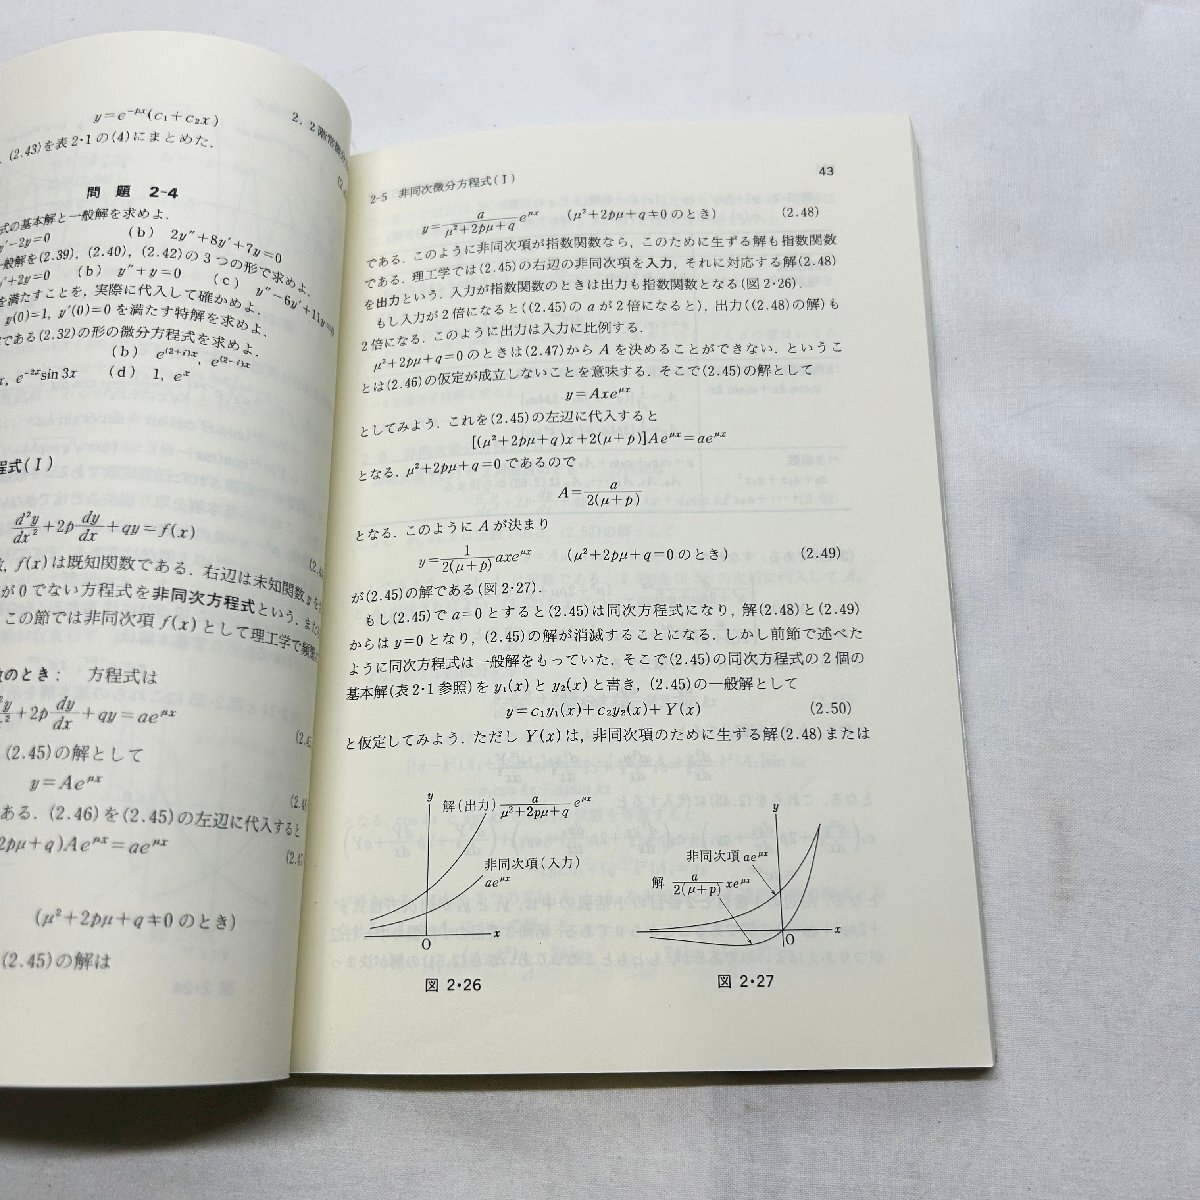 y=e^{-px}(c₁+c₂x)
(2.43)を表2・1の(4)にまとめた.
問 題 2-4
式の基本解と一般解を求めよ.
y'-2y=0 (b) 2y''+8y'+7y=0
一般解を(2.39), (2.40), (2.42)の3つの形で求めよ.
y'+2y=0 (b) y''+y=0 (c) y''-6y'+11y=0
を満たすことを, 実際に代入して確かめよ.
y(0)=1, y'(0)=0を満たす特解を求めよ.
である(2.32)の形の微分方程式を求めよ.
(b) e^{(2+i)x}, e^{(2-i)x}
x, e^{-2x}sin 3x (d) 1, e^x
程式(I)
d²y/dx²+2p dy/dx+qy=f(x)
f(x)は既知関数である. 右辺は未知関数yを
が0でない方程式を非同次方程式という.
この節では非同次項f(x)として理工学で
のとき: 方程式は
+2p dy/dx+qy=ae^{μx}
(2.45)の解として
y=Ae^{μx}
ある. (2.46)を(2.45)の左辺に代入すると
2pμ+q)Ae^{μx}=ae^{μx}
(μ²+2pμ+q≠0のとき)
(2.45)の解は
2-5 非同次微分方程式(I) 43
y=a/(μ²+2pμ+q) e^{μx} (μ²+2pμ+q≠0のとき) (2.48)
である. このように非同次項が指数関数なら, このために生ずる解も指数関数
である. 理工学では(2.45)の右辺の非同次項を入力, それに対応する解(2.48)
を出力という. 入力が指数関数のときは出力も指数関数となる(図2・26).
もし入力が2倍になると((2.45)のaが2倍になると), 出力((2.48)の解)も
2倍になる. このように出力は入力に比例する.
μ²+2pμ+q=0のときは(2.47)からAを決めることができない. というこ
とは(2.46)の仮定が成立しないことを意味する. そこで(2.45)の解として
y=Axe^{μx}
としてみよう. これを(2.45)の左辺に代入すると
[(μ²+2pμ+q)x+2(μ+p)]Ae^{μx}=ae^{μx}
となる. μ²+2pμ+q=0であるので
A=a/2(μ+p)
となる. このようにAが決まり
y=1/2(μ+p) axe^{μx} (μ²+2pμ+q=0のとき) (2.49)
が(2.45)の解である(図2・27).
もし(2.45)でa=0とすると(2.45)は同次方程式になり, 解(2.48)と(2.49)
からはy=0となり, (2.45)の解が消滅することになる. しかし前節で述べた
ように同次方程式は一般解をもっていた. そこで(2.45)の同次方程式の2個の
基本解(表2・1参照)をy₁(x)とy₂(x)と書き, (2.45)の一般解として
y=c₁y₁(x)+c₂y₂(x)+Y(x) (2.50)
と仮定してみよう. ただしY(x)は, 非同次項のために生ずる解(2.48)または
y
解(出力) a/(μ²+2pμ+q) e^{μx}
非同次項(入力)
ae^{μx}
O
x
図 2・26
y
非同次項 ae^{μx}
解 a/2(μ+p) xe^{μx}
O
x
図 2・27